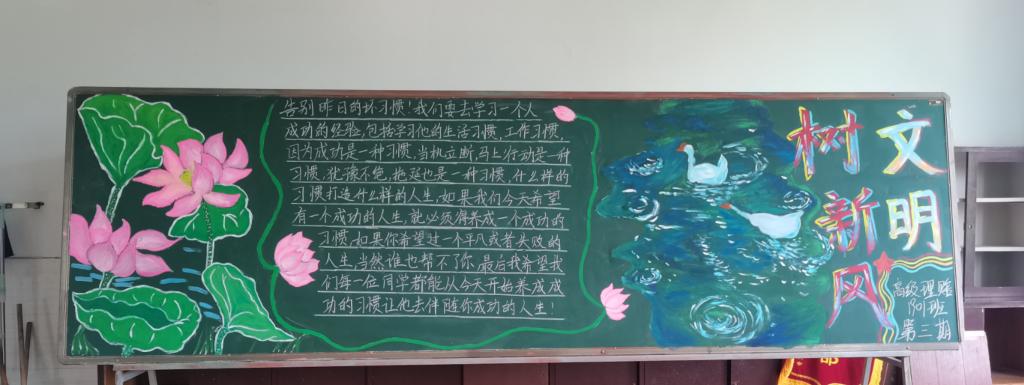 告别昨日的坏习惯!我们要去学习一个人
成功的经验,包括学习他的生活习惯,工作习惯,
因为成功是一种习惯,当机立断,马上行动是一种
习惯,犹豫不绝,拖延也是一种习惯,什么样的
习惯打造什么样的人生,如果我们今天希望
有一个成功的人生,就必须得养成一个成功的
习惯,如果你希望过一个平凡或者失败的
人生,当然谁也帮不了你,最后我希望我
们每一位同学都能从今天开始养成成
功的习惯让他去伴随你成功的人生!
文明
树新风
高级理疗
1901班
第三期